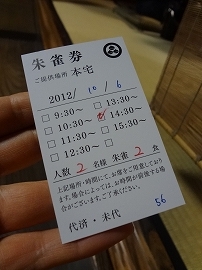 朱雀券
ご提供場所 本宅
2012/ 10 / 6
□ 9:30～ □ 13:30～
□ 10:30～ □ 14:30～
□ 11:30～ □ 15:30～
□ 12:30～ □
人数 2 名様 朱雀 2 食
上記場所・時間にて、お席をご用意しており
ます。場合によっては、お時間が前後する場
合がございます。ご了承ください。
代済・未代
56